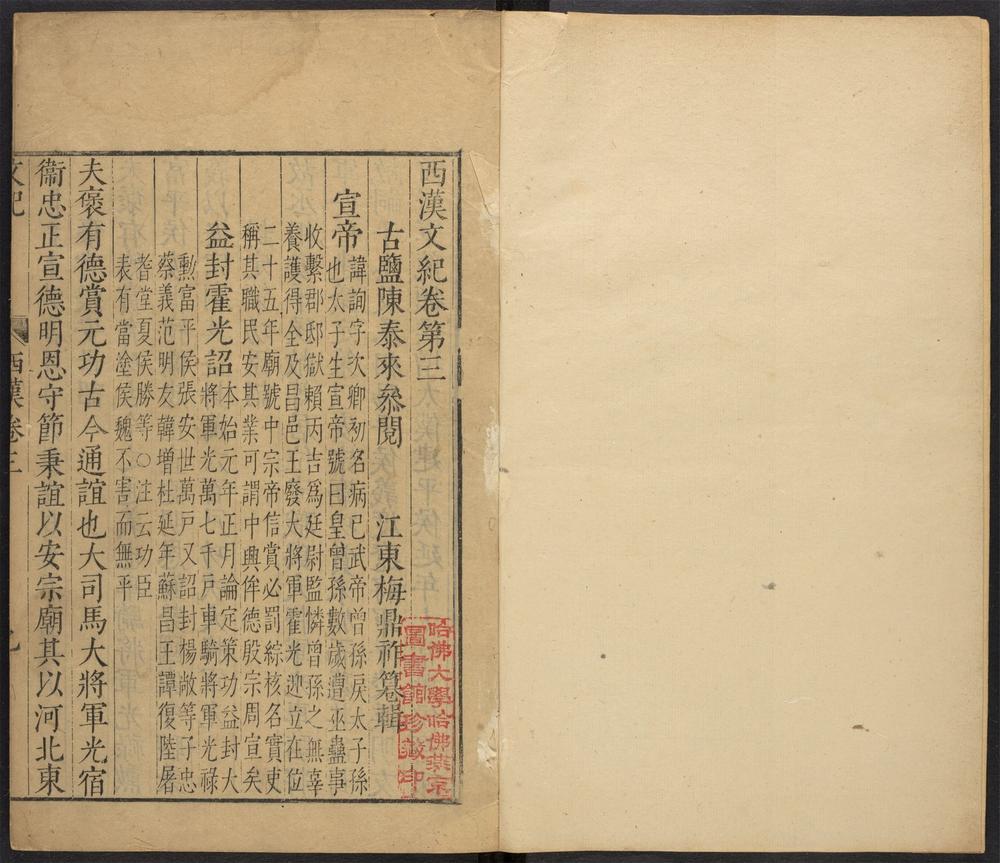 西漢文紀卷第三
古鹽陳泰來叅閱　江東梅鼎祚纂輯
宣帝
諱詢字次卿初名病已武帝曾孫戾太子孫
也太子生宣帝號曰皇曾孫數歲遭巫蠱事
收繫郡邸獄賴丙吉爲廷尉監憐曾孫之無辜
養護得全及昌邑王廢大將軍霍光迎立在位
二十五年廟號中宗帝信賞必罰綜核名實吏
稱其職民安其業可謂中興侔德殷宗周宣矣
益封霍光詔
本始元年正月論定策功益封大
將軍光萬七千戸車騎將軍光祿
勲富平侯張安世萬戸又詔封楊敞等子忠
蔡義范明友韓增杜延年蘇昌王譚復陸屠
耆堂夏侯勝等○注云功臣
表有當塗侯魏不害而無平
夫褒有德賞元功古今通誼也大司馬大將軍光宿
衞忠正宣德明恩守節秉誼以安宗廟其以河北東
文紀
西漢卷三
哈佛大學哈佛燕京
圖書館珍藏印